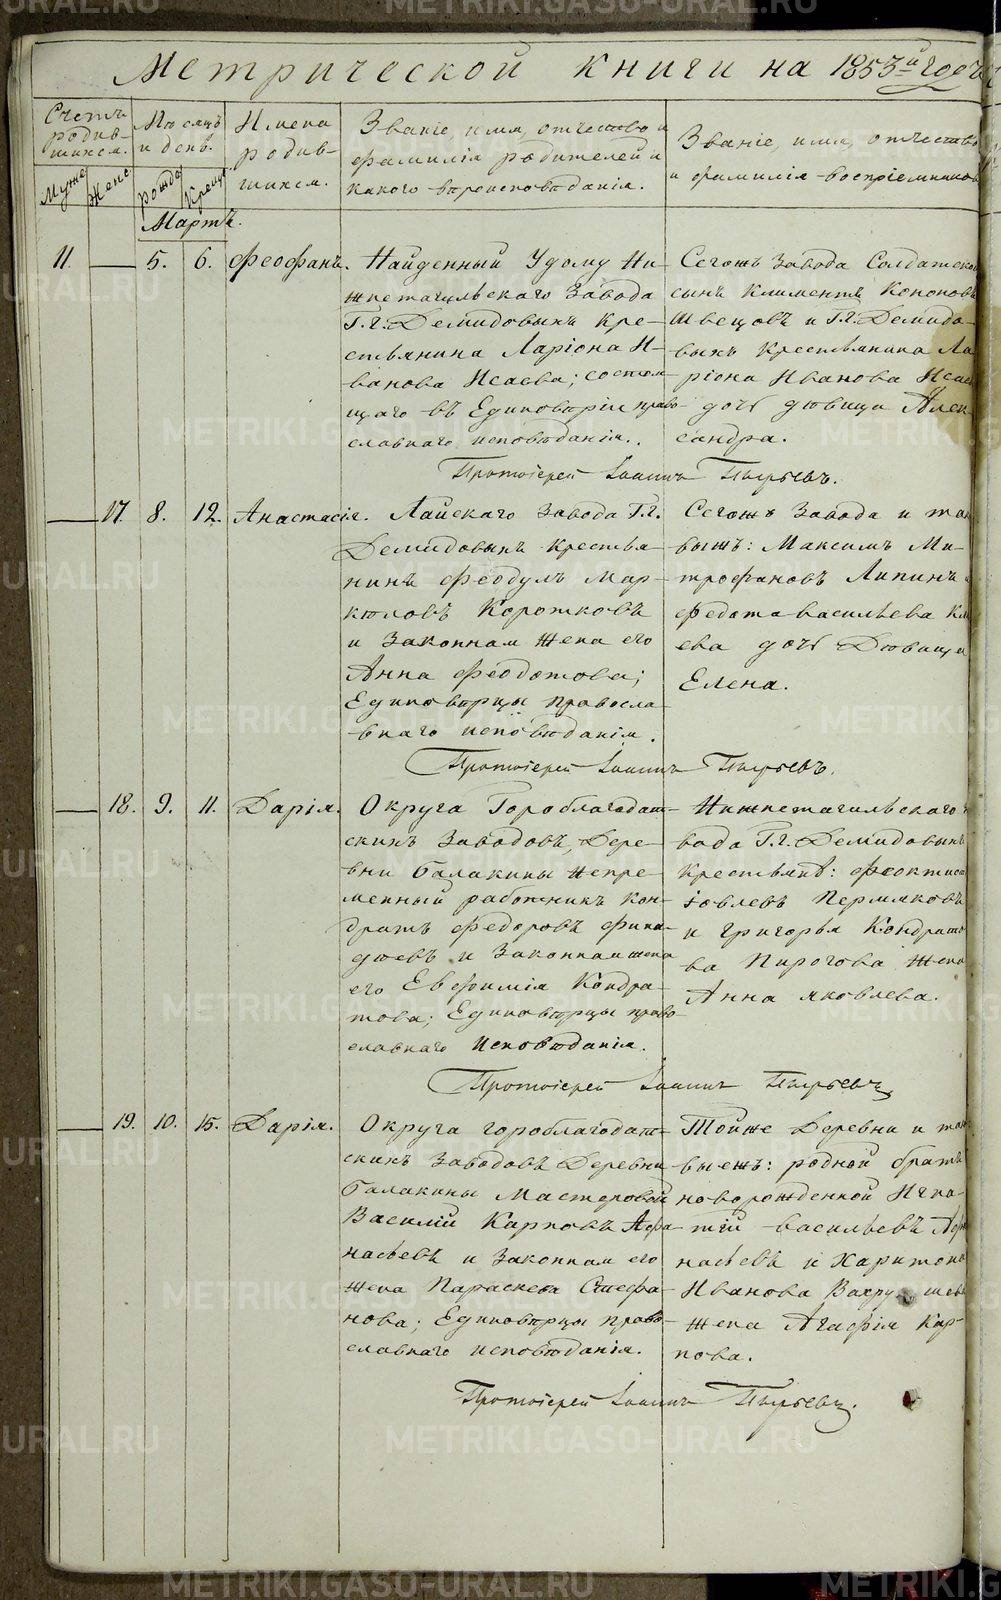 Метрической книги на 1853й годъ
Счетъ родив-
шихся.
Муже
Женс
Мѣсяцъ
и день.
Рожде
Крещ.
Имена
родив-
шихся.
Званіе, имя, отчество и
фамилія родителей и
какого вѣроисповѣданія.
Званіе, имя, отчество
и фамилія воспріемников
Мартъ.
11. 5. 6. Феофанъ.
Найденный Удому Ни-
жнетагильскаго Завода
Г.г. Демидовыхъ кре-
стьянина Ларіона И-
ванова Исаева; состоя
щаго въ Единовѣріи право-
славнаго исповѣданія.
Сегожъ Завода Солдатской
сынъ Климентъ Кононовъ
Швецовъ и Г.г. Демидо-
выхъ крестьянина Ла
ріона Иванова Исае
дочь дѣвица Алек-
сандра.
Протоіерей Іоаннъ Пырьевъ.
17. 8. 12. Анастасія.
Лайскаго завода Г.г.
Демидовыхъ крестья-
нинъ Феодулъ Мар-
келовъ Коротковъ
и Законная жена его
Анна Феодотова;
Единовѣрцы правосла-
внаго исповѣданія.
Сегожъ Завода и та
выхъ: Максимъ Ми-
трофановъ Липинъ и
Федота Васильева Кл
ева дочь Дѣвица
Елена.
Протоіерей Іоаннъ Пырьевъ.
18. 9. 11. Дарія.
Округа Гороблагодат-
скихъ Заводовъ, Дере-
вни Балакины непре-
менный работникъ Кон-
дратъ Федоровъ Фина-
дѣевъ и Законная жена
его Евфимія Кондра-
това; Единовѣрцы право-
славнаго исповѣданія.
Нижнетагильскаго За
вода Г.г. Демидовыхъ
Крестьянѣ: Феоктис
Іовлевъ Пермяковъ
и Григорья Кондрато
ва Пирогова жена
Анна Яковлева.
Протоіерей Іоаннъ Пырьевъ
19. 10. 15. Дарія.
Округа гороблагодат-
скихъ Заводовъ Деревни
Балакины Мастеровой
Василій Карповъ Афа-
насьевъ и Законная его
жена Параскева Стефа-
нова; Единовѣрцы право-
славнаго исповѣданія.
Тойже Деревни и та
выежъ: родной братъ
новорожденной Игна-
тій Васильевъ Афа
насьевъ и Харитона
Иванова Вахрушев
жена Агафія Кар-
пова.
Протоіерей Іоаннъ Пырьевъ.
METRIKI.GASO-URAL.RU